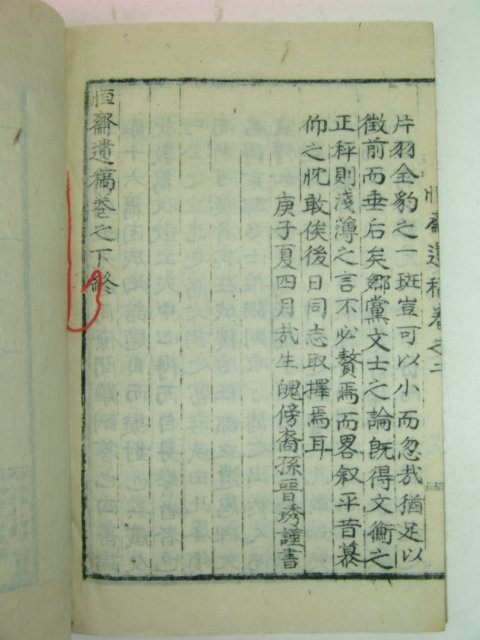 恒齋遺稿卷之二
片羽金豹之一斑豈可以小而忽哉猶足以
徵前而垂后矣鄉黨文士之論旣得文衡之
正秤則淺薄之言不必贅焉而畧叙平昔慕
仰之忱敢俟後日同志取擇焉耳
庚子夏四月哉生魄傍裔孫晉琇謹書
恒齋遺稿卷之下終